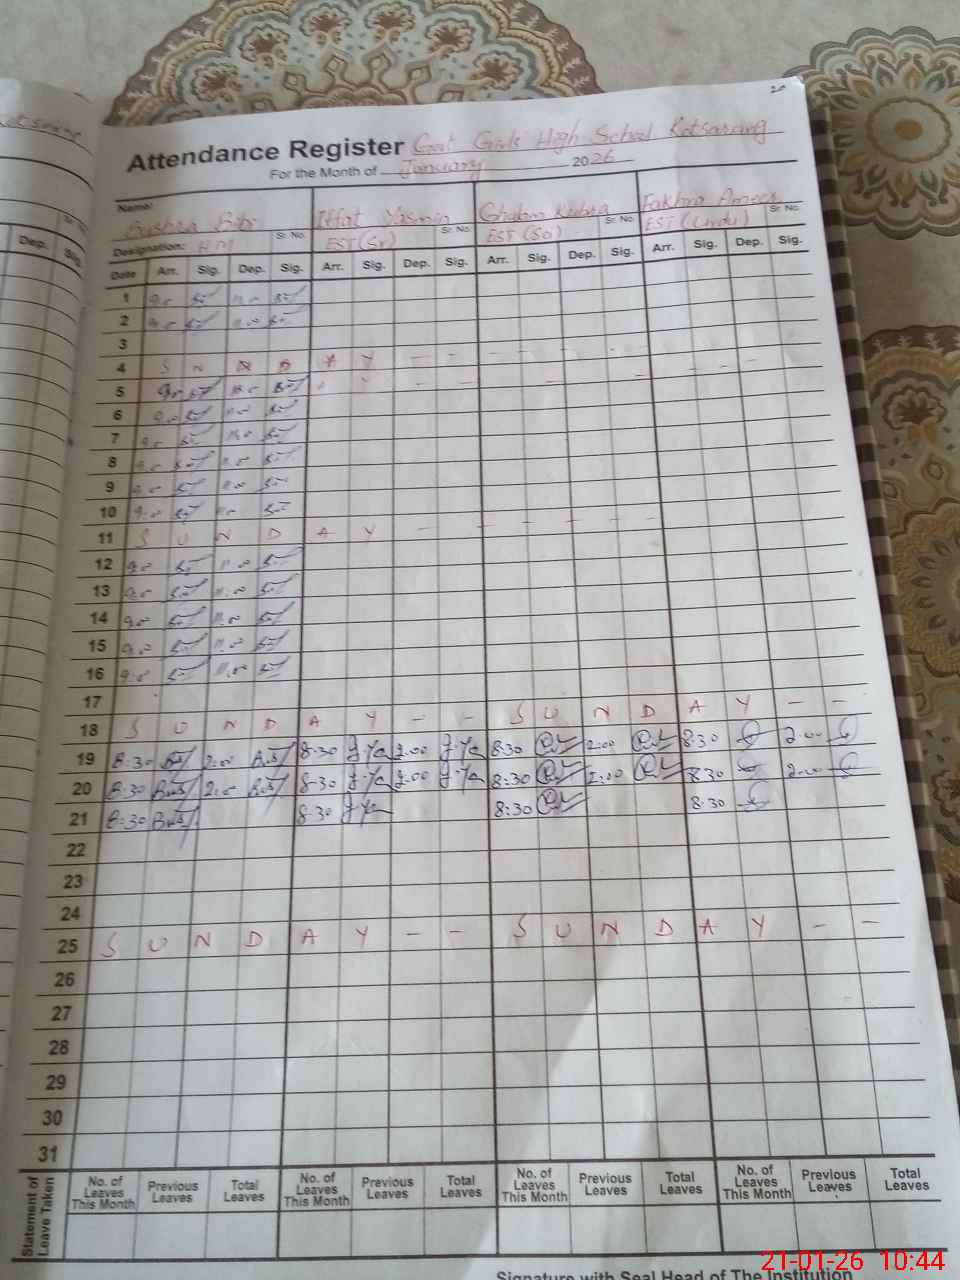 20
Attendance Register Govt Girls High School Kotsarang
For the Month of January 2026
Name: Bushra Bibi Iffat Yasmin Ghulam Kubra Fakhra Ameer
Sr. No. Sr. No. Sr. No. Sr. No.
Designation: HM EST (Sr) EST (Sci) EST (Urdu)
Date Arr. Sig. Dep. Sig. Arr. Sig. Dep. Sig. Arr. Sig. Dep. Sig. Arr. Sig. Dep. Sig.
Dep. Sig.
1 9.0 11.0
2 9.0 11.00
3
4 S U N D A Y - -
5 9.00 11.0
6 9.00 11.00
7 9.0 11.0
8 9.0 11.00
9 9.0 11.00
10 9.0 11.0
11 S U N D A Y - - - - -
12 9.0 11.00
13 9.0 11.00
14 9.0 11.0
15 9.0 11.00
16 9.0 11.00
17
18 S U N D A Y - - S U N D A Y - -
19 8:30 2:00 8:30 2:00 8:30 2:00 8:30 2:00
20 8:30 2:0 8:30 2:00 8:30 2:00 8:30 2:00
21 8:30 8:30 8:30 8:30
22
23
24
25 S U N D A Y - - S U N D A Y - -
26
27
28
29
30
31
Statement of Leave Taken
No. of Leaves This Month Previous Leaves Total Leaves No. of Leaves This Month Previous Leaves Total Leaves No. of Leaves This Month Previous Leaves Total Leaves No. of Leaves This Month Previous Leaves Total Leaves
Signature with Seal Head of The Institution
21-01-26 10:44